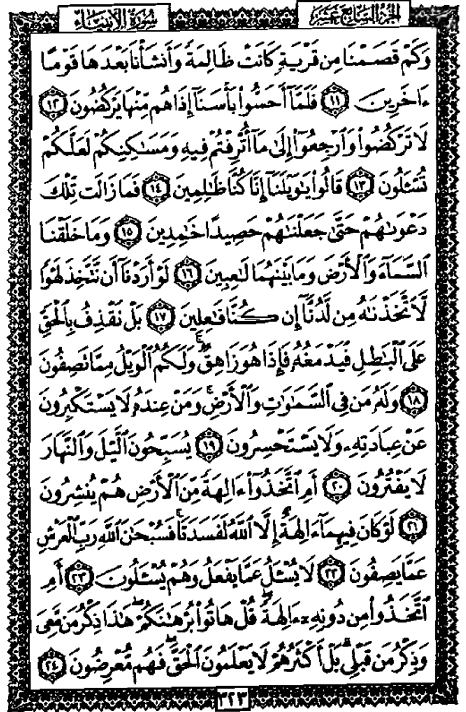 سُورَةُ الأَنبِيَاء الجُزءُ السَّابِعَ عَشَرَ
وَكَمْ قَصَمْنَا مِن قَرْيَةٍ كَانَتْ ظَالِمَةً وَأَنشَأْنَا بَعْدَهَا قَوْمًا
ءَاخَرِينَ ١١ فَلَمَّآ أَحَسُّوا۟ بَأْسَنَآ إِذَا هُم مِّنْهَا يَرْكُضُونَ ١٢
لَا تَرْكُضُوا۟ وَٱرْجِعُوٓا۟ إِلَىٰ مَآ أُتْرِفْتُمْ فِيهِ وَمَسَٰكِنِكُمْ لَعَلَّكُمْ
تُسْـَٔلُونَ ١٣ قَالُوا۟ يَٰوَيْلَنَآ إِنَّا كُنَّا ظَٰلِمِينَ ١٤ فَمَا زَالَت تِّلْكَ
دَعْوَىٰهُمْ حَتَّىٰ جَعَلْنَٰهُمْ حَصِيدًا خَٰمِدِينَ ١٥ وَمَا خَلَقْنَا
ٱلسَّمَآءَ وَٱلْأَرْضَ وَمَا بَيْنَهُمَا لَٰعِبِينَ ١٦ لَوْ أَرَدْنَآ أَن نَّتَّخِذَ لَهْوًا
لَّٱتَّخَذْنَٰهُ مِن لَّدُنَّآ إِن كُنَّا فَٰعِلِينَ ١٧ بَلْ نَقْذِفُ بِٱلْحَقِّ
عَلَى ٱلْبَٰطِلِ فَيَدْمَغُهُۥ فَإِذَا هُوَ زَاهِقٌ ۚ وَلَكُمُ ٱلْوَيْلُ مِمَّا تَصِفُونَ
١٨ وَلَهُۥ مَن فِى ٱلسَّمَٰوَٰتِ وَٱلْأَرْضِ ۚ وَمَنْ عِندَهُۥ لَا يَسْتَكْبِرُونَ
عَنْ عِبَادَتِهِۦ وَلَا يَسْتَحْسِرُونَ ١٩ يُسَبِّحُونَ ٱلَّيْلَ وَٱلنَّهَارَ
لَا يَفْتُرُونَ ٢٠ أَمِ ٱتَّخَذُوٓا۟ ءَالِهَةً مِّنَ ٱلْأَرْضِ هُمْ يُنشِرُونَ
٢١ لَوْ كَانَ فِيهِمَآ ءَالِهَةٌ إِلَّا ٱللَّهُ لَفَسَدَتَا ۚ فَسُبْحَٰنَ ٱللَّهِ رَبِّ ٱلْعَرْشِ
عَمَّا يَصِفُونَ ٢٢ لَا يُسْـَٔلُ عَمَّا يَفْعَلُ وَهُمْ يُسْـَٔلُونَ ٢٣ أَمِ
ٱتَّخَذُوا۟ مِن دُونِهِۦٓ ءَالِهَةً ۖ قُلْ هَاتُوا۟ بُرْهَٰنَكُمْ ۖ هَٰذَا ذِكْرُ مَن مَّعِىَ
وَذِكْرُ مَن قَبْلِى ۗ بَلْ أَكْثَرُهُمْ لَا يَعْلَمُونَ ٱلْحَقَّ ۖ فَهُم مُّعْرِضُونَ ٢٤
٣٢٣